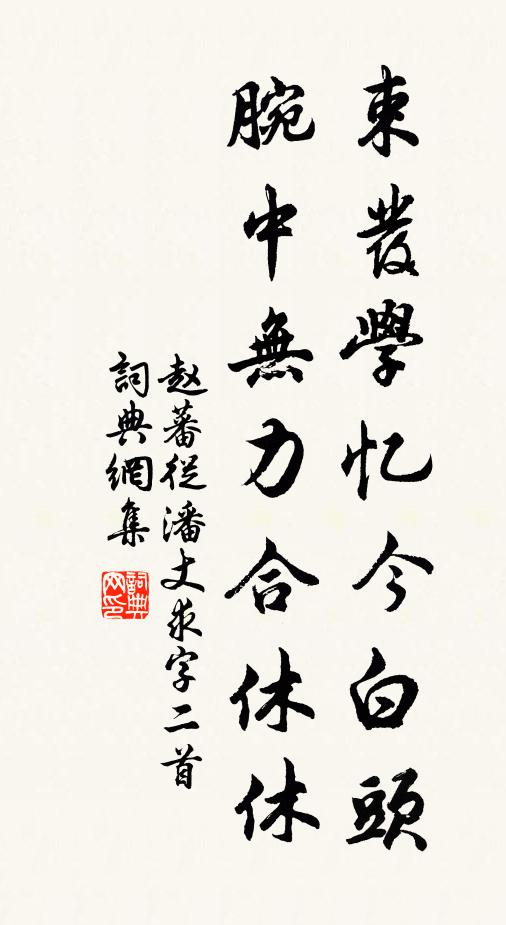 束發學忆今白頭
腕中無力合休休
赵蕃從潘丈求字二首
詞典網集
詞典网印